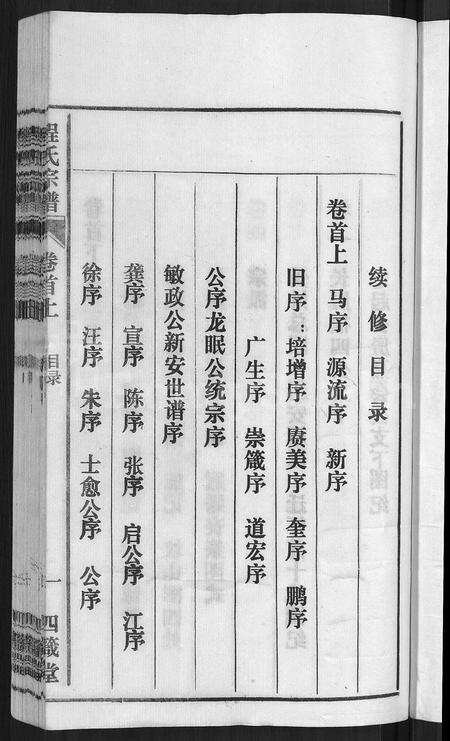 续修目录
卷首上 马序 源流序 新序
旧序：培增序 赓美序 奎序 鹏序
广生序 崇箴序 道宏序
公序龙眠公统宗序
敏政公新安世谱序
龚序 宣序 陈序 张序 启公序 江序
徐序 汪序 朱序 士愈公序 公序
程氏宗谱 卷首上 目录 一 四箴堂